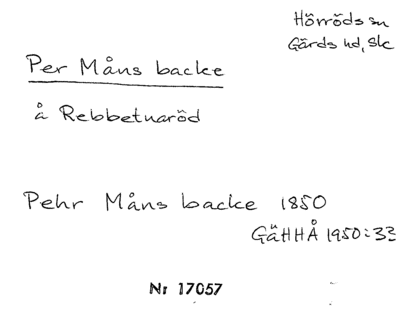 Hörröds sn
Gärds hd, Skc
Per Måns backe
å Rebbetuaröd
Pehr Måns backe 1850
GäHHÅ 1950:33
Nr 17057